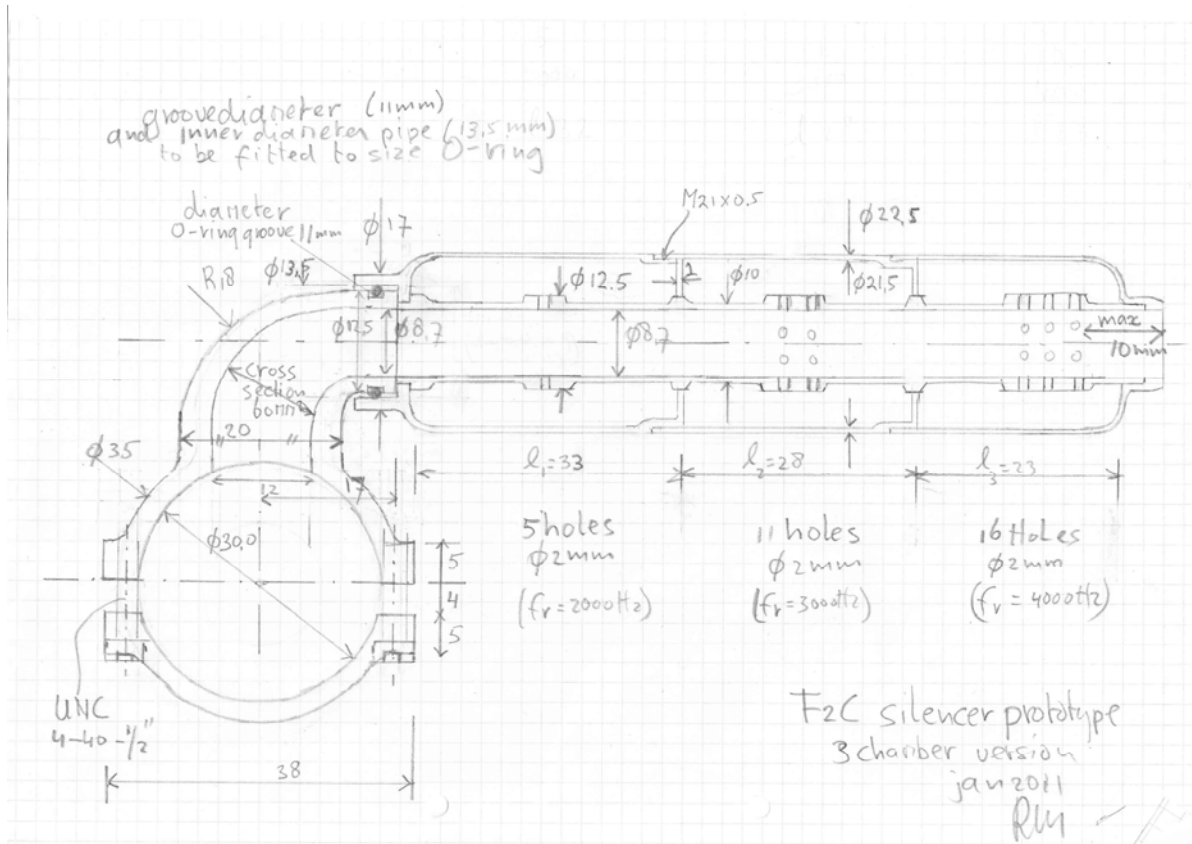 groovediameter (11mm)
and inner diameter pipe (13,5 mm)
to be fitted to size O-ring
diameter
O-ring groove 11mm
φ17
M21x0.5
φ22,5
φ13,5
R18
φ12.5
2
φ10
φ21,5
φ12,5
φ8,7
φ8,7
max
10mm
cross
section
"20"
φ35
l1=33
l2=28
l3=23
12
17
φ30,0
5
4
5
5 holes
φ2mm
(fr=2000Hz)
11 holes
φ2mm
(fr=3000Hz)
16 Holes
φ2mm
(fr=4000Hz)
UNC
4-40-1/2"
38
F2C silencer prototype
3 chamber version
jan 2011
RM